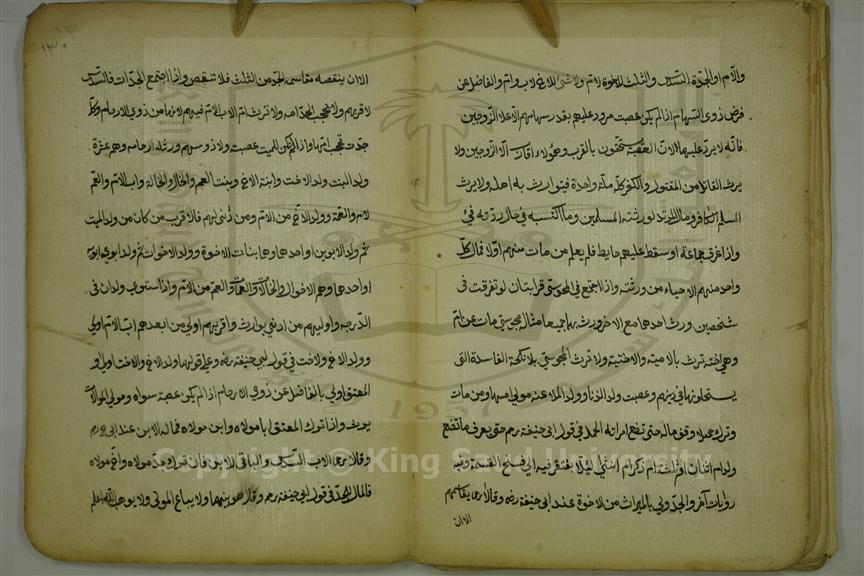 والام او الجدة السدس والثلث للاخوة لام ولا شئ للاخ لاب وام والفاضل عن
فرض ذوى السهام اذا لم يكن عصبة مردود عليهم بقدر سهامهم الا على الزوجين
فانه لا يرد عليهما لان العصبة يستحقون بالقرب وهؤلاء اقارب الا الزوجين ولا
يرث القاتل من المقتول والكفر كله ملة واحدة فيتوارث به اهله ولا يرث
المسلم الكافر ومال المرتد لورثته المسلمين وما اكتسبه في حال ردته فئ
واذا غرق جماعة او سقط عليهم حايط فلم يعلم من مات منهم اولا فمال كل
واحد منهم الاحياء من ورثته واذا اجتمع في المجوسى قرابتان لو تفرقت في
شخصين ورث احدهما مع الاخر ورث بهما جميعا مثاله مجوسي مات عن ام
وهي اخته ترث بالامية والاختية ولا ترث المجوسي بالانكحة الفاسدة التى
يستحلونها في دينهم وعصبة ولد الزنا وولد الملاعنة مولى امهما ومن مات
وترك حملا وقف ماله حتى تضع امراته الحمل في قول ابي حنيفة رحم حتى
ولدام اثنان
روايات اخر والجد اولى بالميراث من الاخوة عند ابى حنيفة رضه وقالا رحمهما يقاسمهم
الا ان
الا ان ينقصه مقاسمة الجد من الثلث فلا تنقص واذا اجتمع الجدات فالسدس
لاقربهم ولا تحجب الجد امه ولا ترث ام الاب الام فيهم لانها من ذوي الارحام وكل
جدة تحجب امها واذا لم يكن للميت عصبة ولا ذو سهم ورثه ارحامه وهم عشرة
ولد البنت وولد الاخت وابنة الاخ وبنت العم والخال والخالة واب الام والعم
لام والعمة وولد الاخ من الام ومن ادلى بهم فالاقرب من كان من ولد الميت
ثم ولد الابوين او احدهما وهما بنات الاخوة وولد الاخوات ثم ولد ابوي ابويه
او احدهما وهم الاخوال والخالات والعمات والعم من الام واذا استوى ولدان فى
الدرجة واوليهم من ادلى بوارث واقربهم اولى من ابعدهم اب الام اولى
وولد الاخ والاخت في قول ابي حنيفة رضه وعلى قولهما ولد الاخ والاخت اولى و
المعتق اولى بالفاضل عن ذوي الارحام اذا لم يكن عصبة سواه ومولى الموالات
يورث واذا ترك المعتق ابا مولاه وابن مولاه فماله الابن عند ابى
وقالا رحمهما الاب السدس والباقى الابن فان ترك جد مولاه واخ مولاه
فالمال للجد في قول ابي حنيفة رحم وقالا هو بينهما ولا يباع المولى ولا يوهب والله اعلم
Copyright © King Saud University
1957